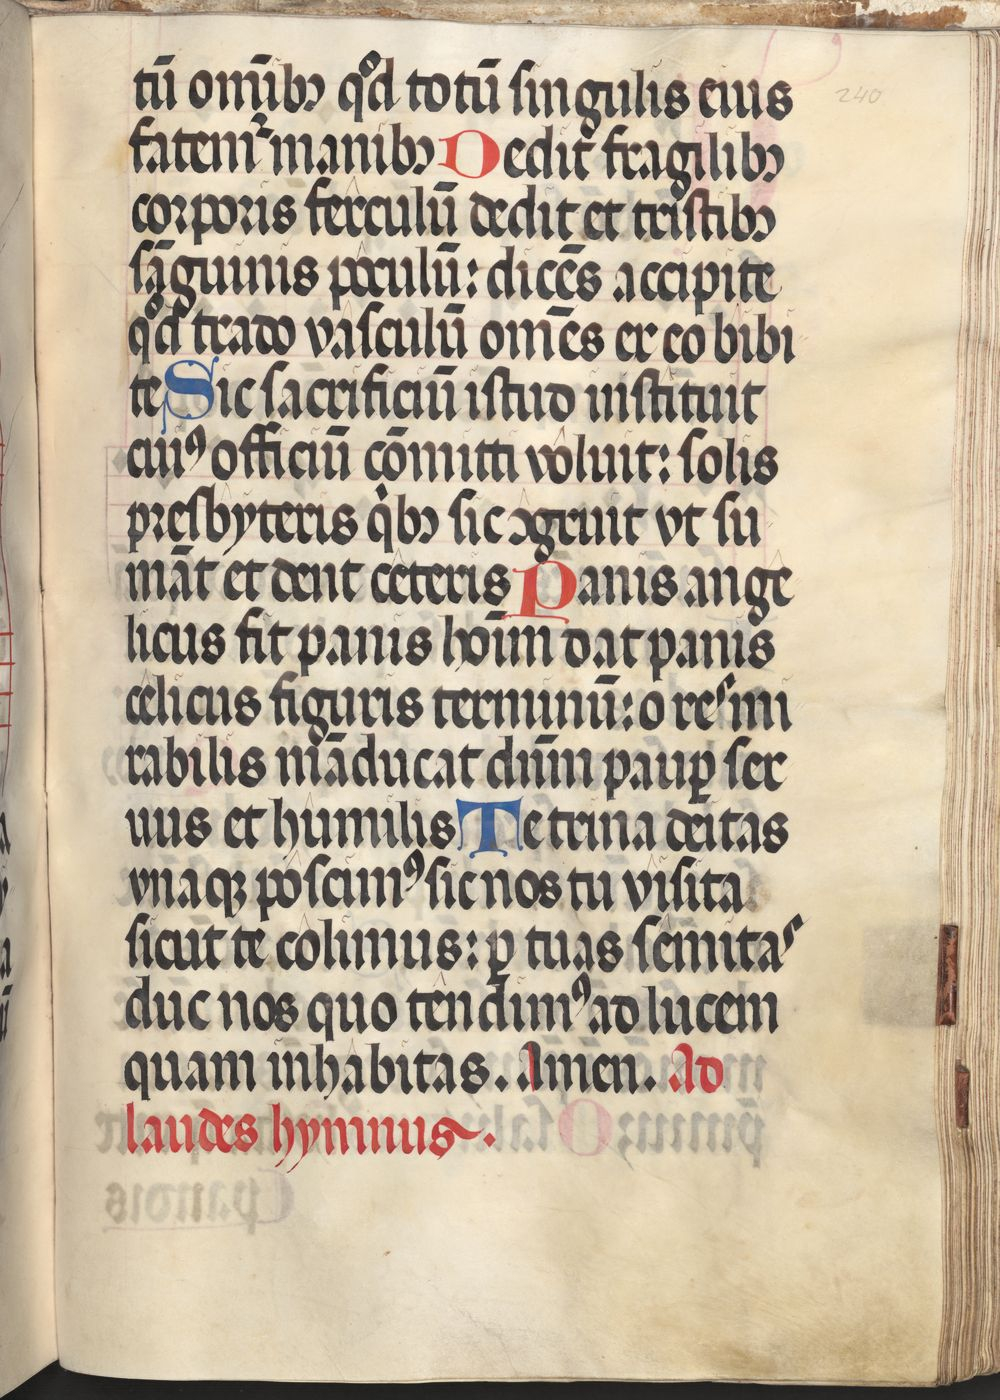 tū om̄ibꝫ qͦd totū singulis eius
240
fatem̃ manibꝫ Dedit fragilibꝫ
corporis ferculū dedit et tristibꝫ
sāguinis poculū: dicēs accipite
qͦd trado vasculū om̄es ex eo bibi
te Sic sacrificiū istud instituit
cuiꝰ officiū cōmitti voluit: solis
presbyteris qͥbꝫ sic ↄgruit vt su
māt et dent ceteris Panis ange
licus fit panis hoīm dat panis
celicus figuris terminū: o res mi
rabilis māducat dn̄m paupꝑ ser
uus et humilis Te trina deitas
vnaqꝫ poscimꝰ sic nos tu visita
sicut te colimus: ꝑ tuas semitas
duc nos quo tendimꝰ ad lucem
quam inhabitas. Amen. Ad
laudes hymnus.